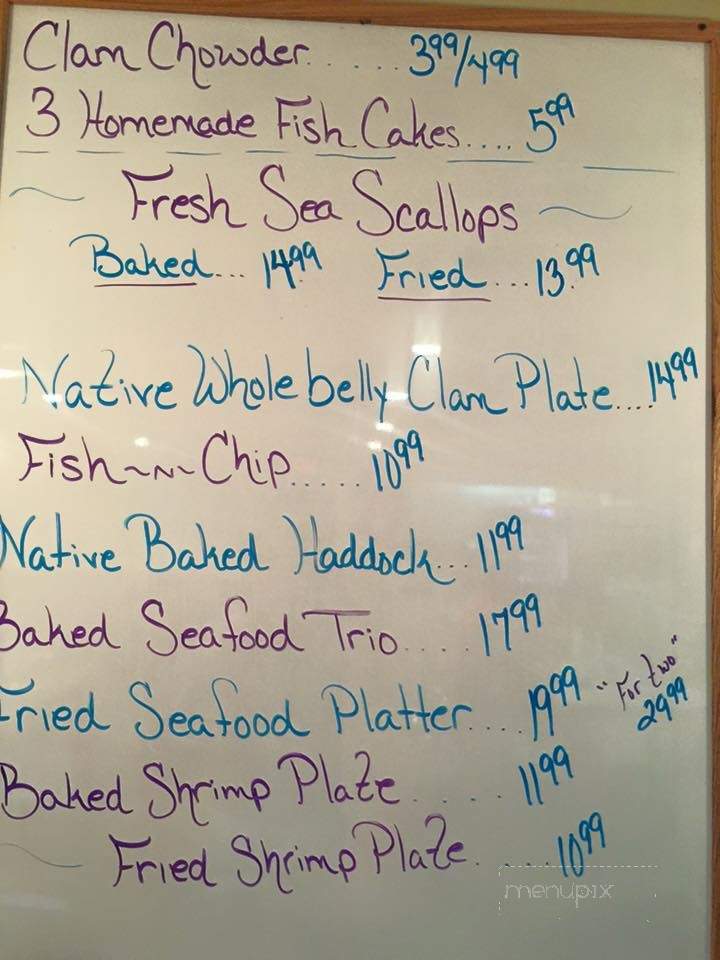 Clam Chowder...... 3.99/4.99
3 Homemade Fish Cakes.... 5.99
~ Fresh Sea Scallops ~
Baked... 14.99 Fried... 13.99
Native Whole belly Clam Plate.... 14.99
Fish~N~Chip..... 10.99
Native Baked Haddock... 11.99
Baked Seafood Trio.... 17.99
Fried Seafood Platter.... 19.99 "For two" 29.99
Baked Shrimp Plate..... 11.99
~ Fried Shrimp Plate..... 10.99
menupix